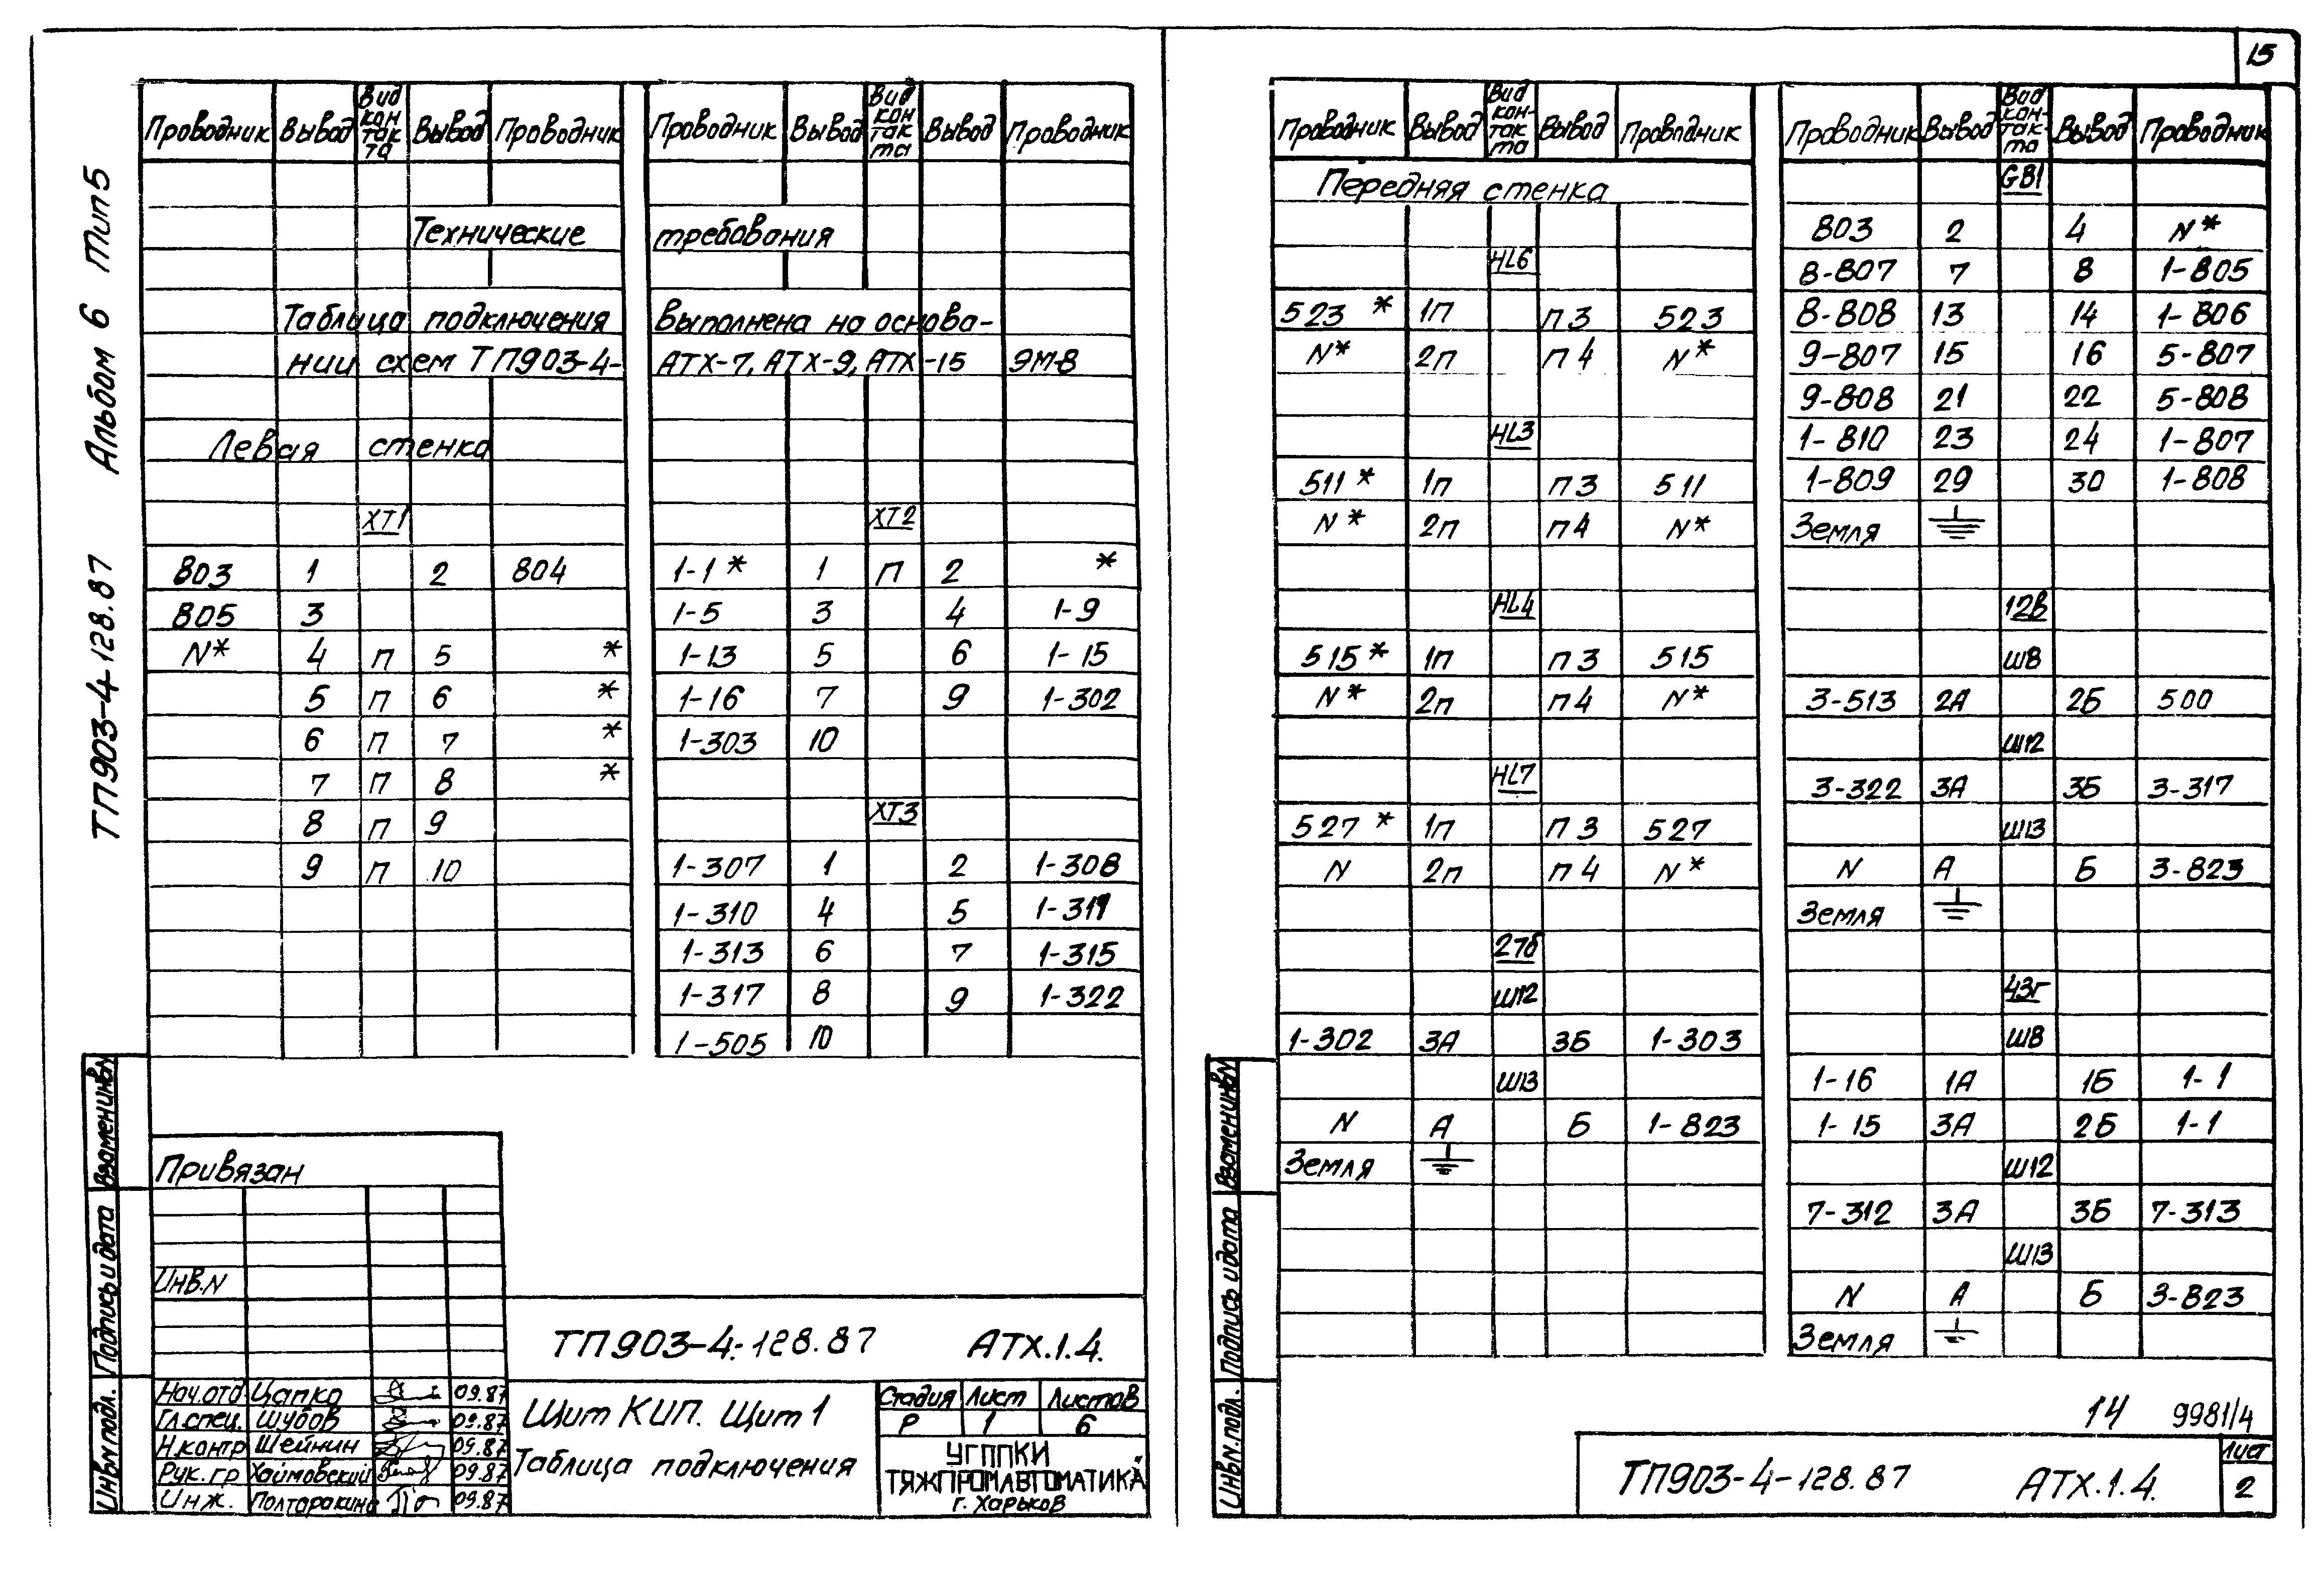 15
ТП903-4-128.87 Альбом 6 Тип 5
Проводник Вывод Вид контакта Вывод Проводник Проводник Вывод Вид контакта Вывод Проводник
Технические требования
Таблица подключения выполнена на основа-
нии схем ТП903-4- АТХ-7, АТХ-9, АТХ-15 ЭМ-8
Левая стенка
ХТ1
803 1 2 804
805 3
N* 4 П 5 *
5 П 6 *
6 П 7 *
7 П 8 *
8 П 9
9 П 10
ХТ2
1-1* 1 П 2 *
1-5 3 4 1-9
1-13 5 6 1-15
1-16 7 9 1-302
1-303 10
ХТ3
1-307 1 2 1-308
1-310 4 5 1-311
1-313 6 7 1-315
1-317 8 9 1-322
1-505 10
Взамен инв N
Подпись и дата
Инв N подл.
Привязан
Инв. N
ТП903-4-128.87 АТХ.1.4.
Нач.отд Цапко 09.87
Гл.спец. Шубов 09.87
Н.контр Шейнин 09.87
Рук. гр Хаймовский 09.87
Инж. Полторакина 09.87
Щит КИП. Щит 1
Таблица подключения
Стадия Лист Листов
Р 1 6
УГППКИ
ТЯЖПРОМАВТОМАТИКА
г. Харьков
Проводник Вывод Вид контакта Вывод Проводник
Передняя стенка
HL6
523 * 1п п3 523
N* 2п п4 N*
HL3
511 * 1п п3 511
N* 2п п4 N*
HL4
515* 1п п3 515
N* 2п п4 N*
HL7
527 * 1п п3 527
N 2п п4 N*
27б
Ш12
1-302 3А 3Б 1-303
Ш13
N А Б 1-823
Земля
Проводник Вывод Вид контакта Вывод Проводник
GB1
803 2 4 N*
8-807 7 8 1-805
8-808 13 14 1-806
9-807 15 16 5-807
9-808 21 22 5-808
1-810 23 24 1-807
1-809 29 30 1-808
Земля
12в
Ш8
3-513 2А 2Б 500
Ш12
3-322 3А 3Б 3-317
Ш13
N А Б 3-823
Земля
43г
Ш8
1-16 1А 1Б 1-1
1-15 3А 2Б 1-1
Ш12
7-312 3А 3Б 7-313
Ш13
N А Б 3-823
Земля
Взамен инв N
Подпись и дата
Инв N. подл.
14 9981/4
ТП903-4-128.87 АТХ.1.4.
Лист
2